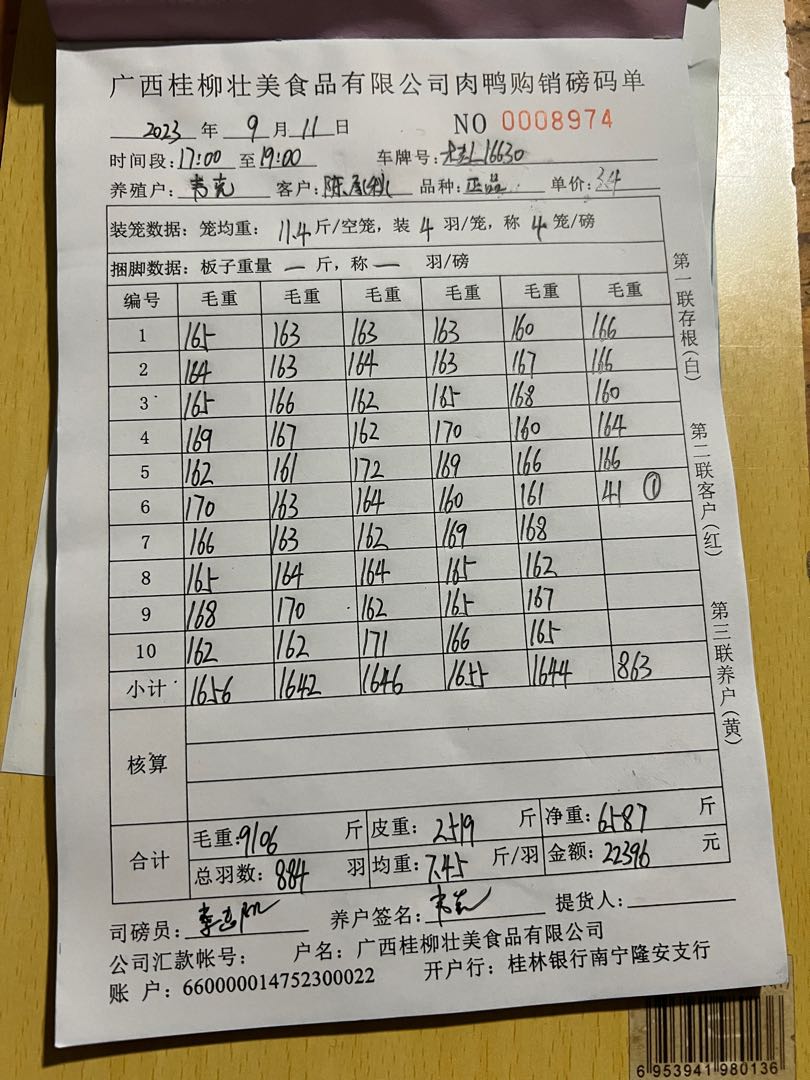 广西桂柳壮美食品有限公司肉鸭购销磅码单
2023 年 9 月 11 日 NO 0008974
时间段: 17:00 至 19:00 车牌号: 桂L16630
养殖户: 韦克 客户: 陈 品种: 正品 单价: 3.4
装笼数据: 笼均重: 11.4 斤/空笼, 装 4 羽/笼, 称 4 笼/磅
捆脚数据: 板子重量 — 斤, 称 — 羽/磅
编号 毛重 毛重 毛重 毛重 毛重 毛重
1 165 163 163 163 160 166
2 164 163 164 163 167 166
3 165 166 162 165 168 160
4 169 167 162 170 160 164
5 162 161 172 169 166 166
6 170 163 164 160 161 41 ①
7 166 163 162 169 168
8 165 164 164 165 162
9 168 170 162 165 167
10 162 162 171 166 165
小计 1656 1642 1646 1655 1644 863
核算
合计 毛重: 9106 斤 皮重: 2519 斤 净重: 6587 斤
总羽数: 884 羽 均重: 7.45 斤/羽 金额: 22396 元
司磅员: 养户签名: 韦克 提货人:
公司汇款帐号: 户名: 广西桂柳壮美食品有限公司
账 户: 660000014752300022 开户行: 桂林银行南宁隆安支行
第一联存根(白)
第二联客户(红)
第三联养户(黄)
6 953941 980136